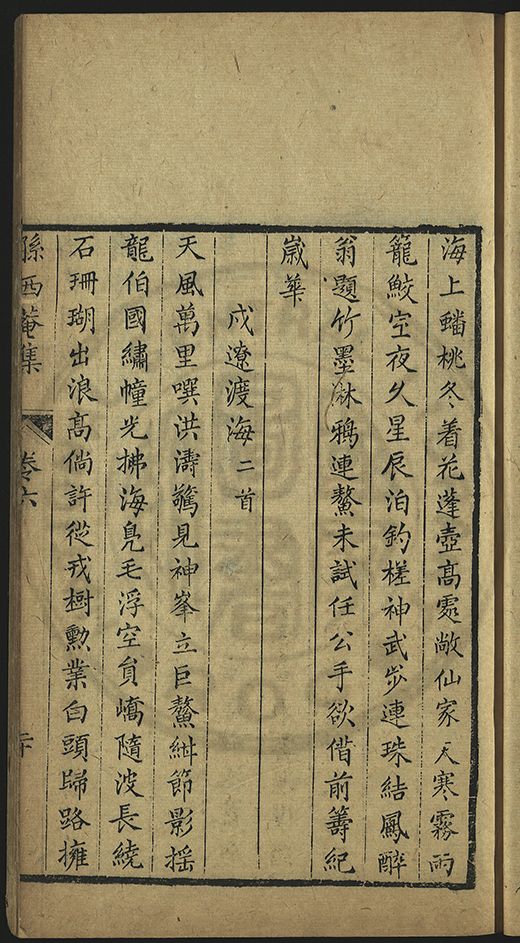 海上蟠桃冬着花蓬壺髙䖏敞仙家天寒霧雨
籠鮫室夜久星辰泊釣槎神武步連珠結鳳醉
翁題竹墨淋鴉連鰲未試任公手欲借前籌紀
歲華
戍遼渡海二首
天風萬里噀洪濤驚見神峯立巨鰲紺節影揺
龍伯國繡幢光拂海鳬毛浮空貟嶠隨波長繞
石珊瑚出浪髙倘許從戎樹勲業白頭歸路擁
孫西菴集 卷六 二十